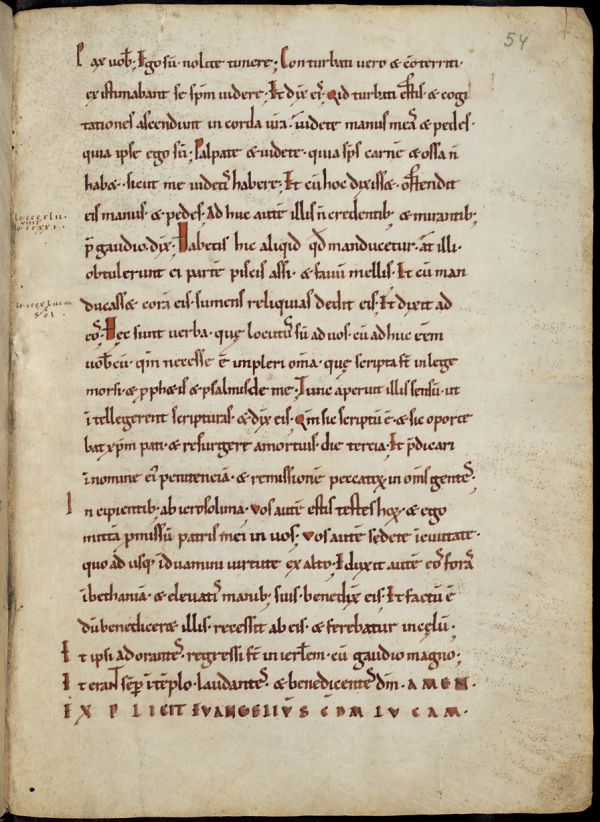 54
Pax vob. Ego sū. nolite timere; Conturbati vero & cōterriti.
existimabant se spm videre. Et dix ei. Qid turbati estis. & cogi
tationes ascendunt in corda vra. videte manus mea & pedes.
quia ipse ego sū; Palpate & videte. quia sps carnē & ossa n̄
hab&. sicut me videtis habere; Et cū hoc dixiss&. ostendit
eis manus & pedes. Ad huc autē illis n̄ credentib; & mirantib;
p̄ gaudio. dix. Habetis hic aliqid qd manducetur. at illi.
obtulerunt ei partē piscis assi. & favū mellis. Et cū man
ducass& corā eis. sumens reliquias dedit eis; Et dixit ad
eos. Hec sunt verba. quę locutus sū ad vos. cū ad huc eēm
vobcū. qm necesse ē impleri om̄ia. quę scripta st in lege
moysi. & pph&is. & psalmis de me. Tunc aperuit illis sensū. ut
ītellegerent scripturas. & dix eis. Qm sic scriptū ē. & sic oporte
bat xpm pati. & resurgere a mortuis. die tercia. Et p̄dicari
ī nomine ei penitenciā. & remissionē peccatoꝝ in oms gentes.
Incipientib; ab ierosolima. vos autē estis testes hoꝝ. & ego
mittā pmissū patris mei in vos; vos autē sedete ī civitate.
quo ad usq; īduamini virtute ex alto. Eduxit autē eos foras
ī bethaniā. & elevatis manib; suis. benedix eis. Et factū ē
dū benedicer& illis. recessit ab eis. & ferebatur in cęlū;
Et ipsi adorantes. regressi st in ierlem. cū gaudio magno;
Et erant sēp ī tēplo. laudantes. & benedicentes dm. AMEN.
EXPLICIT EVANGELIVS CDM LVCAM.